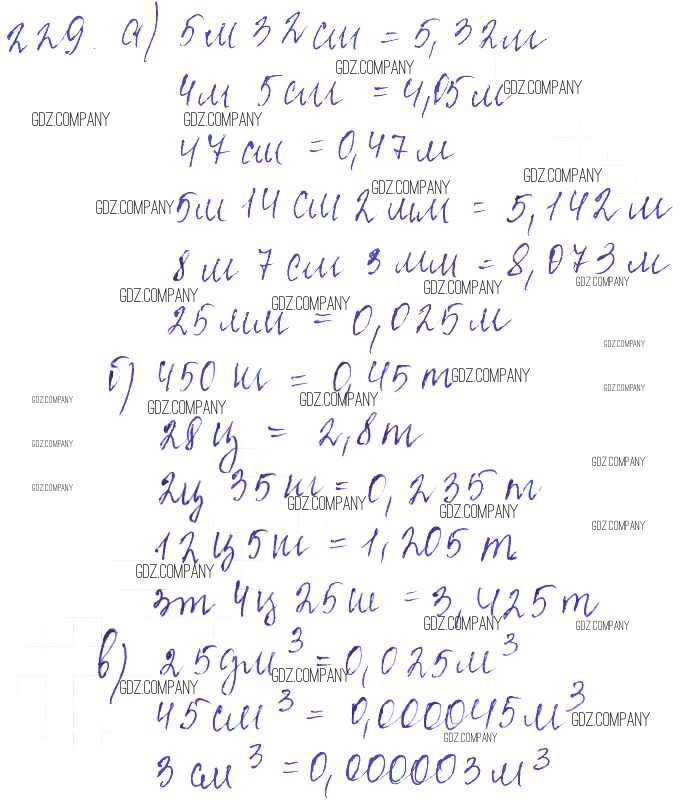 229. а) 5м 32см = 5,32м
GDZ.COMPANY
4м 5см = 4,05м GDZ.COMPANY
GDZ.COMPANY GDZ.COMPANY
47см = 0,47м
GDZ.COMPANY GDZ.COMPANY
GDZ.COMPANY 5м 14см 2мм = 5,142м
8м 7см 3мм = 8,073м
GDZ.COMPANY GDZ.COMPANY GDZ.COMPANY GDZ.COMPANY
25мм = 0,025м
GDZ.COMPANY
б) 450кг = 0,45т GDZ.COMPANY
GDZ.COMPANY GDZ.COMPANY GDZ.COMPANY GDZ.COMPANY
28ц = 2,8т
GDZ.COMPANY GDZ.COMPANY
2ц 35кг = 0,235т
GDZ.COMPANY GDZ.COMPANY GDZ.COMPANY
12ц 5кг = 1,205т
GDZ.COMPANY GDZ.COMPANY
3т 4ц 25кг = 3,425т
GDZ.COMPANY GDZ.COMPANY
в) 25дм³ = 0,025м³
GDZ.COMPANY GDZ.COMPANY
45см³ = 0,000045м³
GDZ.COMPANY GDZ.COMPANY
3см³ = 0,000003м³